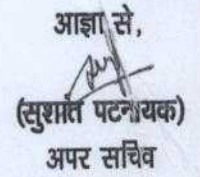 आज्ञा से,
(सुशांत पटनायक)
अपर सचिव